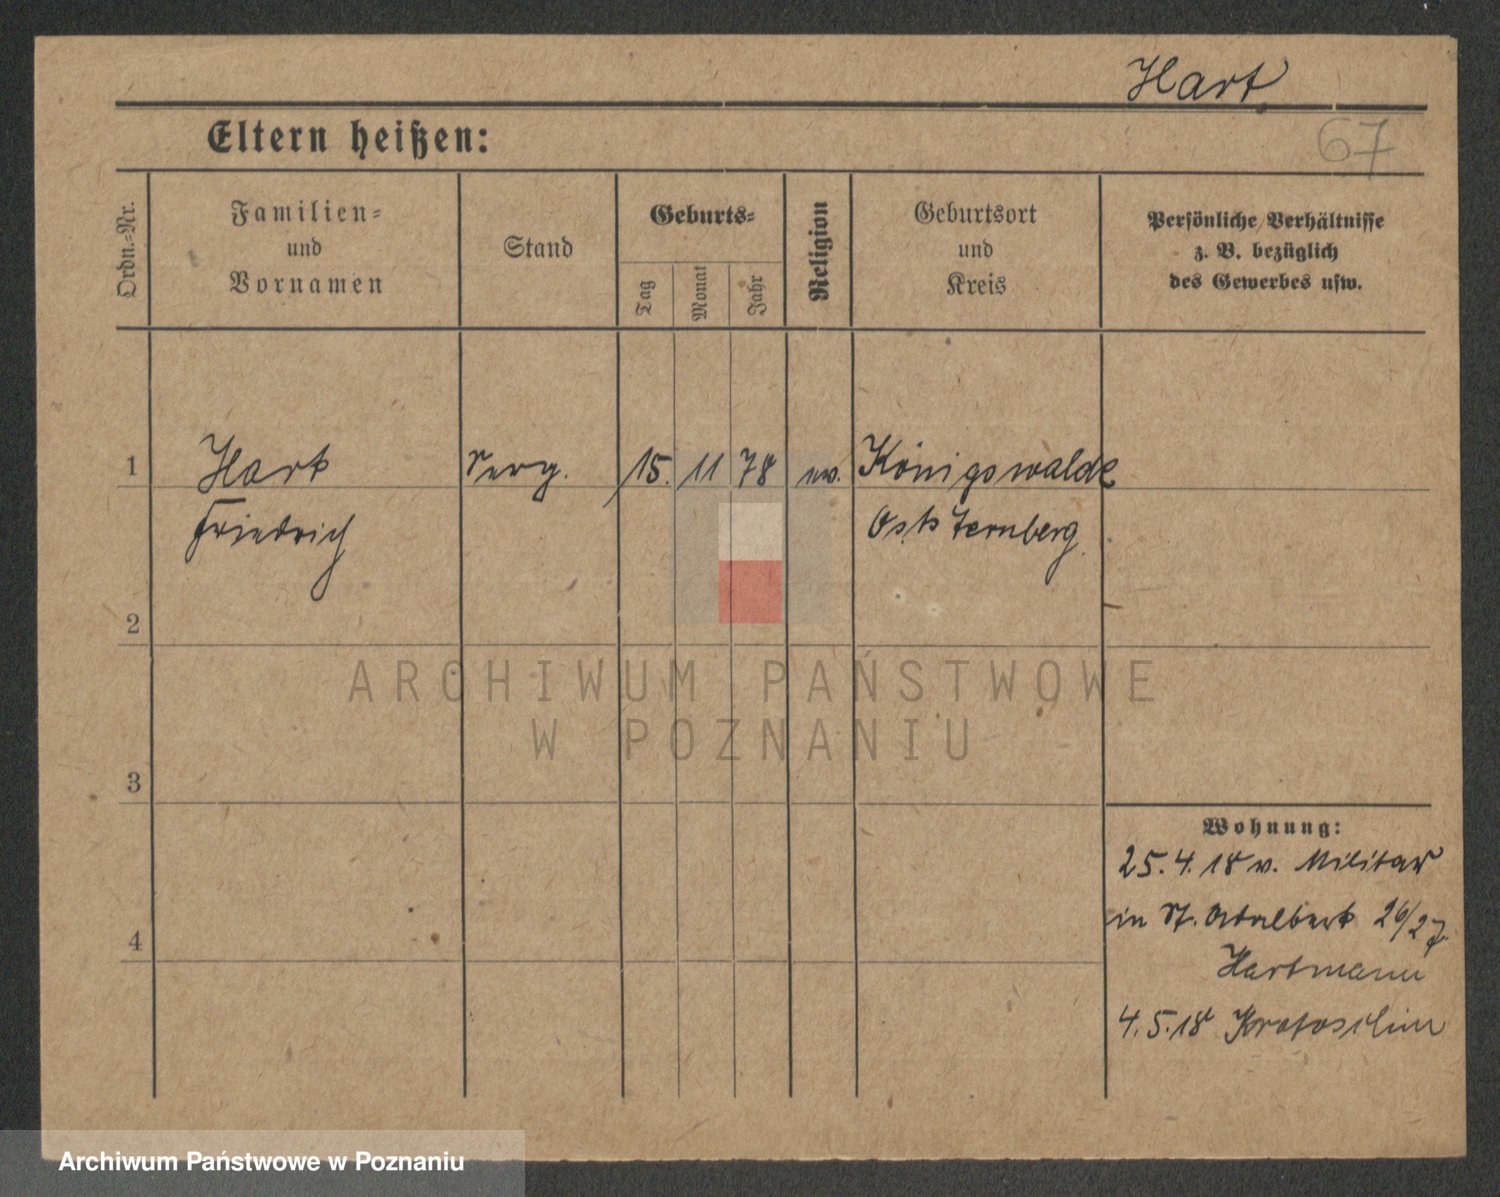 Hart
Eltern heißen:
67
Ordn.-Nr.
Familien-
und
Vornamen
Stand
Geburts-
Tag
Monat
Jahr
Religion
Geburtsort
und
Kreis
Persönliche Verhältnisse
z. B. bezüglich
des Gewerbes usw.
1 Hart Serg. 15. 11 78 ev. Königswalde
Friedrich Oststernberg
2
ARCHIWUM PAŃSTWOWE
W POZNANIU
3
Wohnung:
25.4.18 v. Militär
in St. Adalbert 26/27
4
Hartmann
4.5.18 Krotoschin
Archiwum Państwowe w Poznaniu